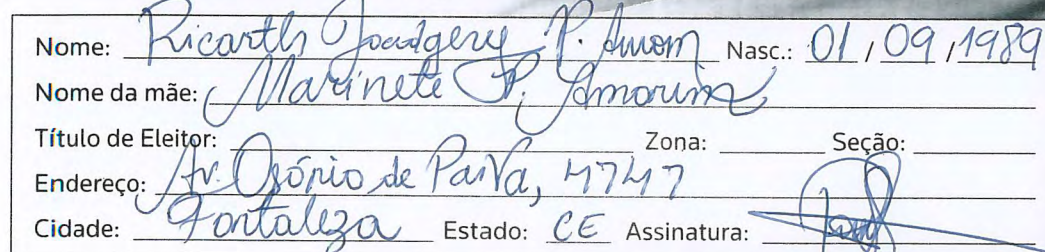 Nome: Ricarth P. Amorim Nasc.: 01/09/1989
Nome da mãe: Marinete P. Amorim
Título de Eleitor: Zona: Seção:
Endereço: Av. Osório de Paiva, 4747
Cidade: Fortaleza Estado: CE Assinatura: